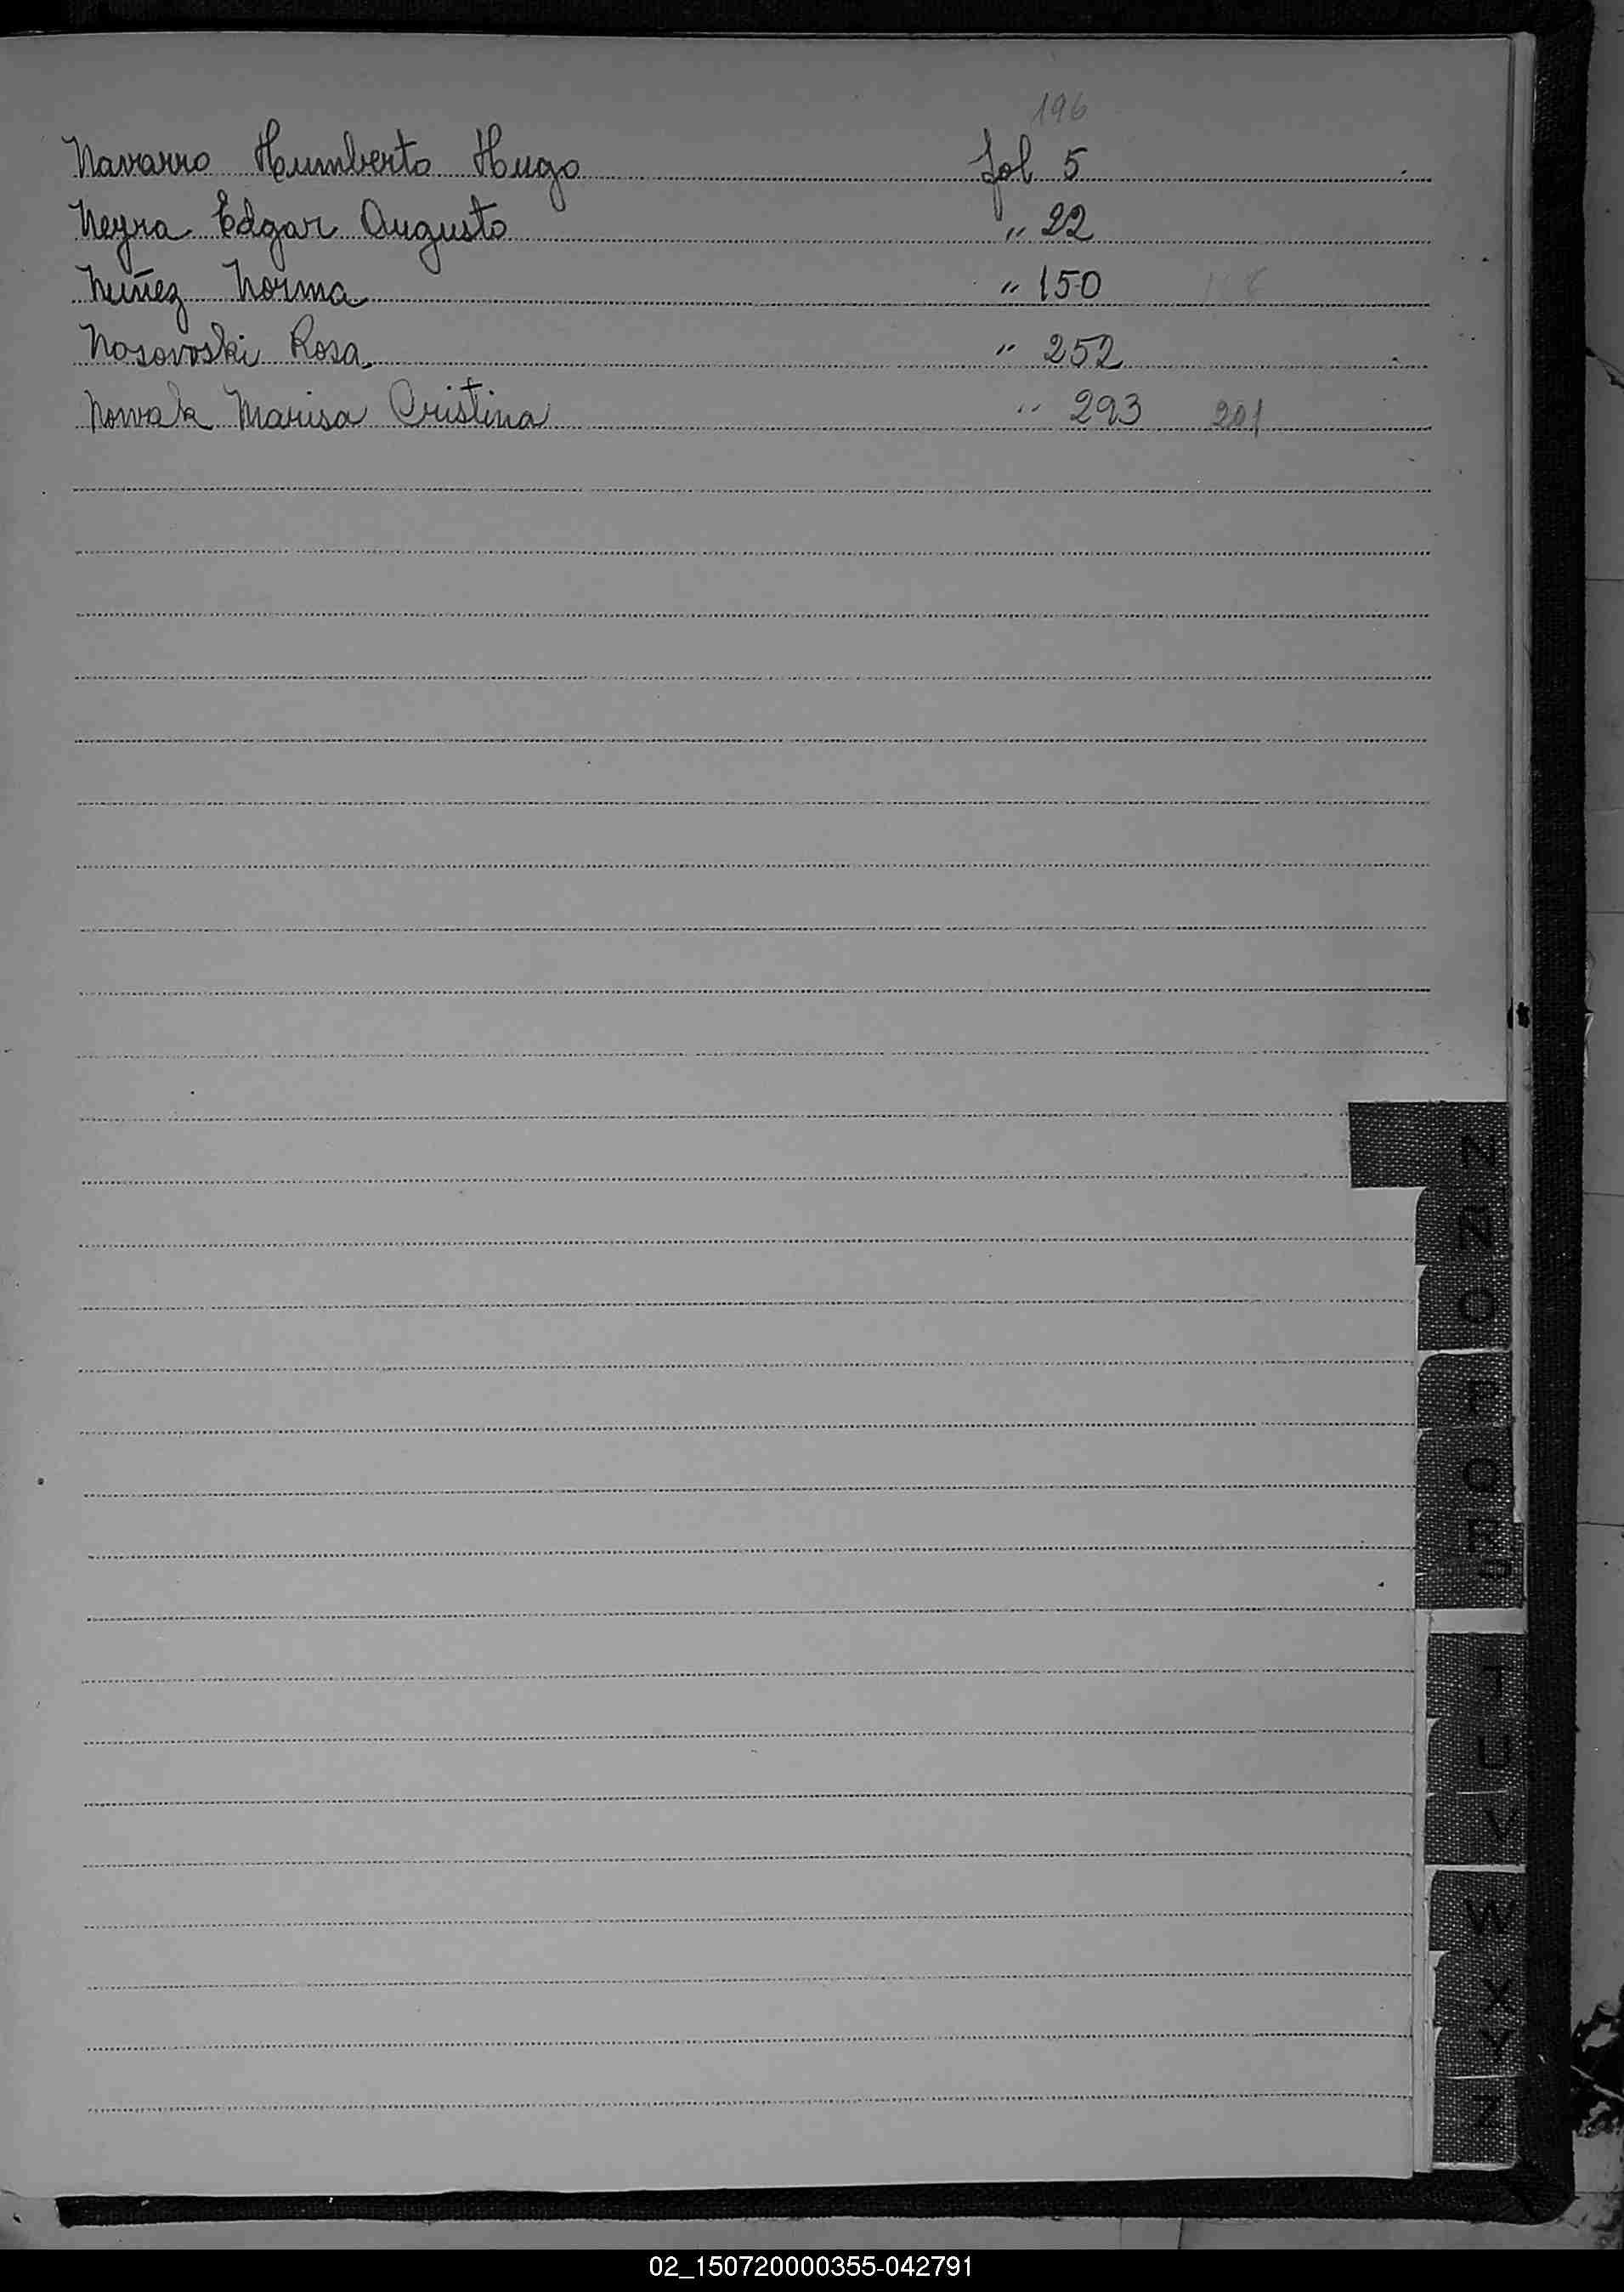 196
Navarro Humberto Hugo fol 5
Neyra Edgar Augusto " 22
Nuñez Norma " 150
Nosovoski Rosa " 252
Nowak Marisa Cristina " 293 201
N
Ñ
O
P
Q
R
T
U
V
W
X
Y
Z
02_150720000355-042791